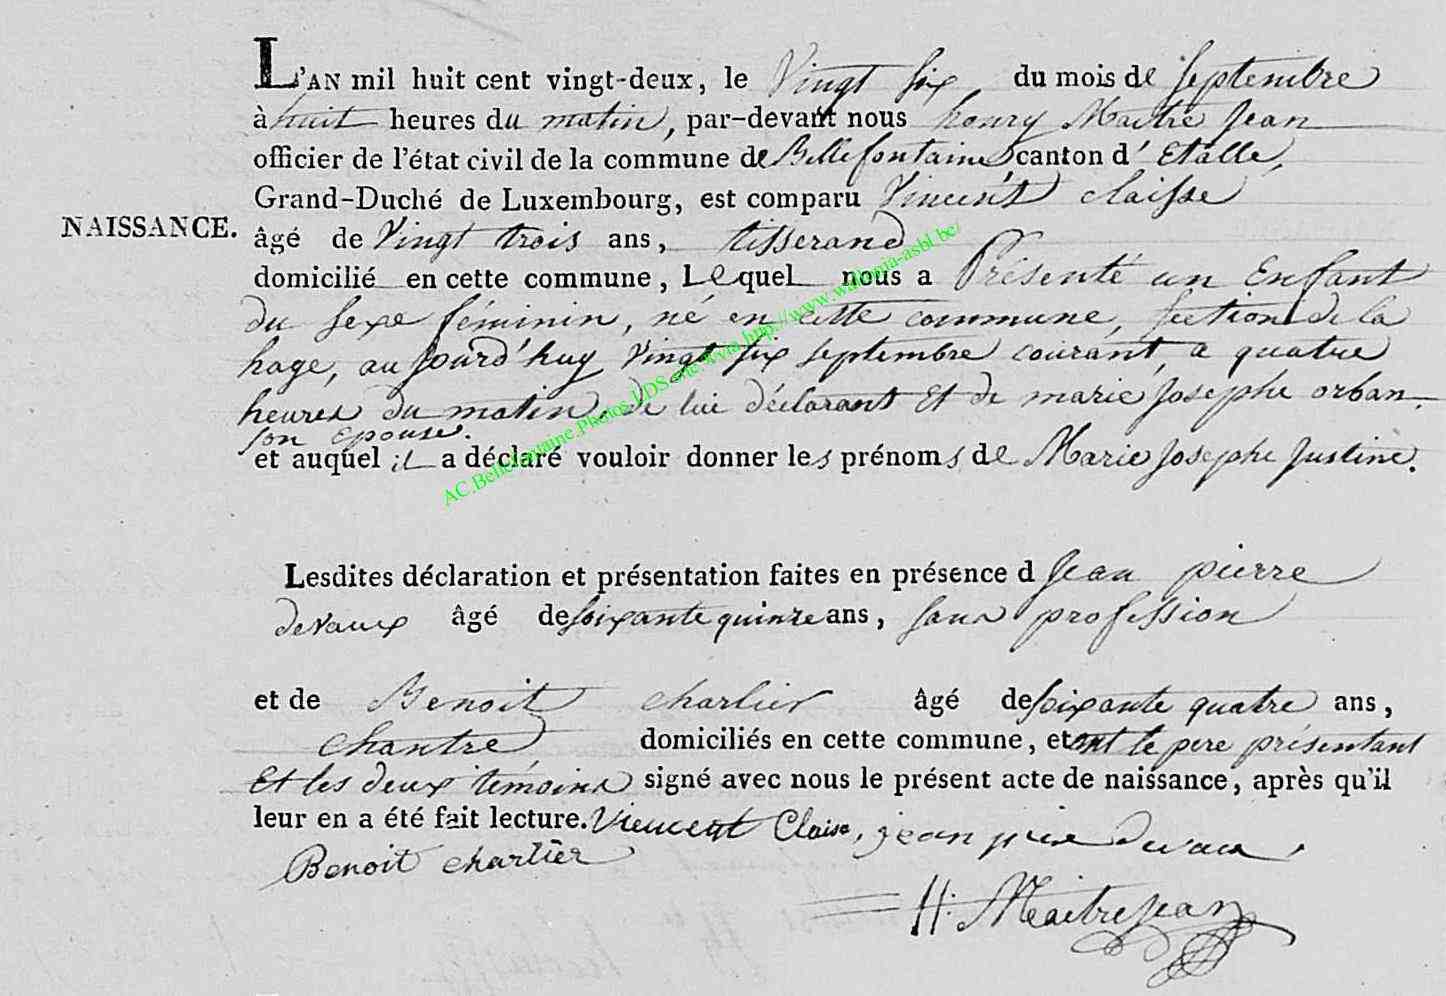 L'AN mil huit cent vingt-deux, le Vingt six du mois de septembre
à huit heures du matin, par-devant nous henry Maitre Jean
officier de l'état civil de la commune de Bellefontaine canton d'Etalle,
Grand-Duché de Luxembourg, est comparu Vincent claisse
NAISSANCE. âgé de Vingt trois ans, tisserand
domicilié en cette commune, Lequel nous a Présenté un Enfant
du sexe féminin, né en cette commune, section de la
hage, au jourd'huy Vingt six septembre courant, a quatre
heures du matin, de lui déclarant Et de marie josephe orban
son Epouse.
et auquel il a déclaré vouloir donner les prénoms de Marie josephe justine.
Lesdites déclaration et présentation faites en présence d Jean pierre
devaux âgé de soixante quinze ans, sans profession
et de Benoit charlier âgé de soixante quatre ans,
chantre domiciliés en cette commune, et ont le pere présentant
Et les deux témoins signé avec nous le présent acte de naissance, après qu'il
leur en a été fait lecture. Viencent Claise, jean piere devaux
Benoit charlier
H: Maitrejean
AC.Bellefontaine.Photos LDS site via http://www.wallonia-asbl.be/